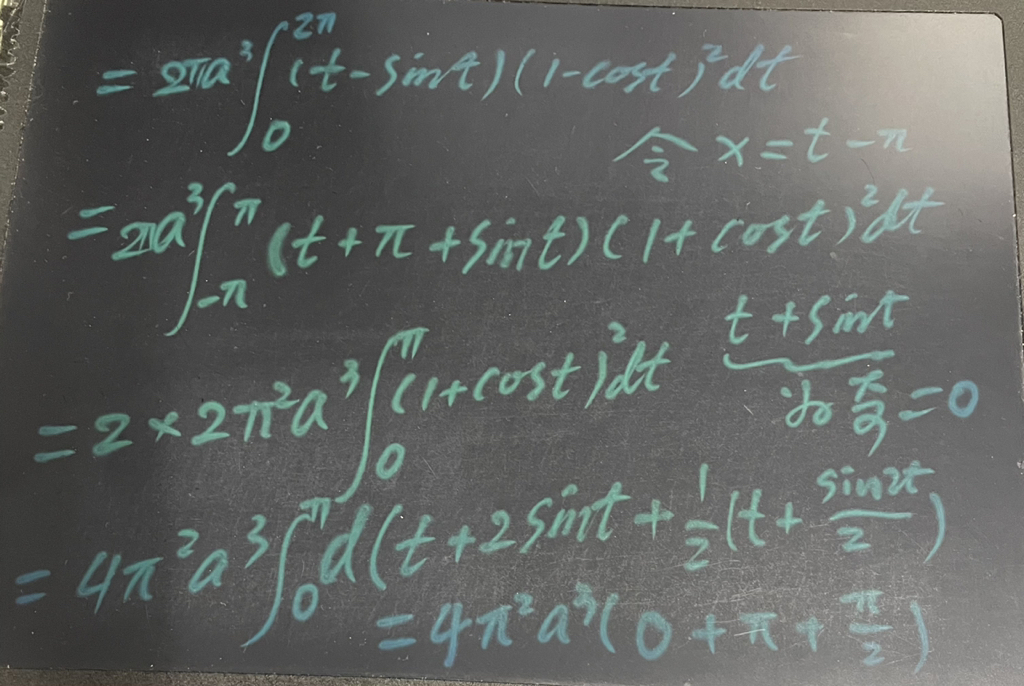 = 2πa³∫₀^{2π} (t-sint)(1-cost)²dt
令 x=t-π
= 2πa³∫_{-π}^{π} (t+π+sint)(1+cost)²dt
= 2×2π²a³∫₀^{π} (1+cost)²dt
t+sint
为奇=0
= 4π²a³∫₀^{π} d(t+2sint+½(t+sin2t/2)
= 4π²a³(0+π+π/2)